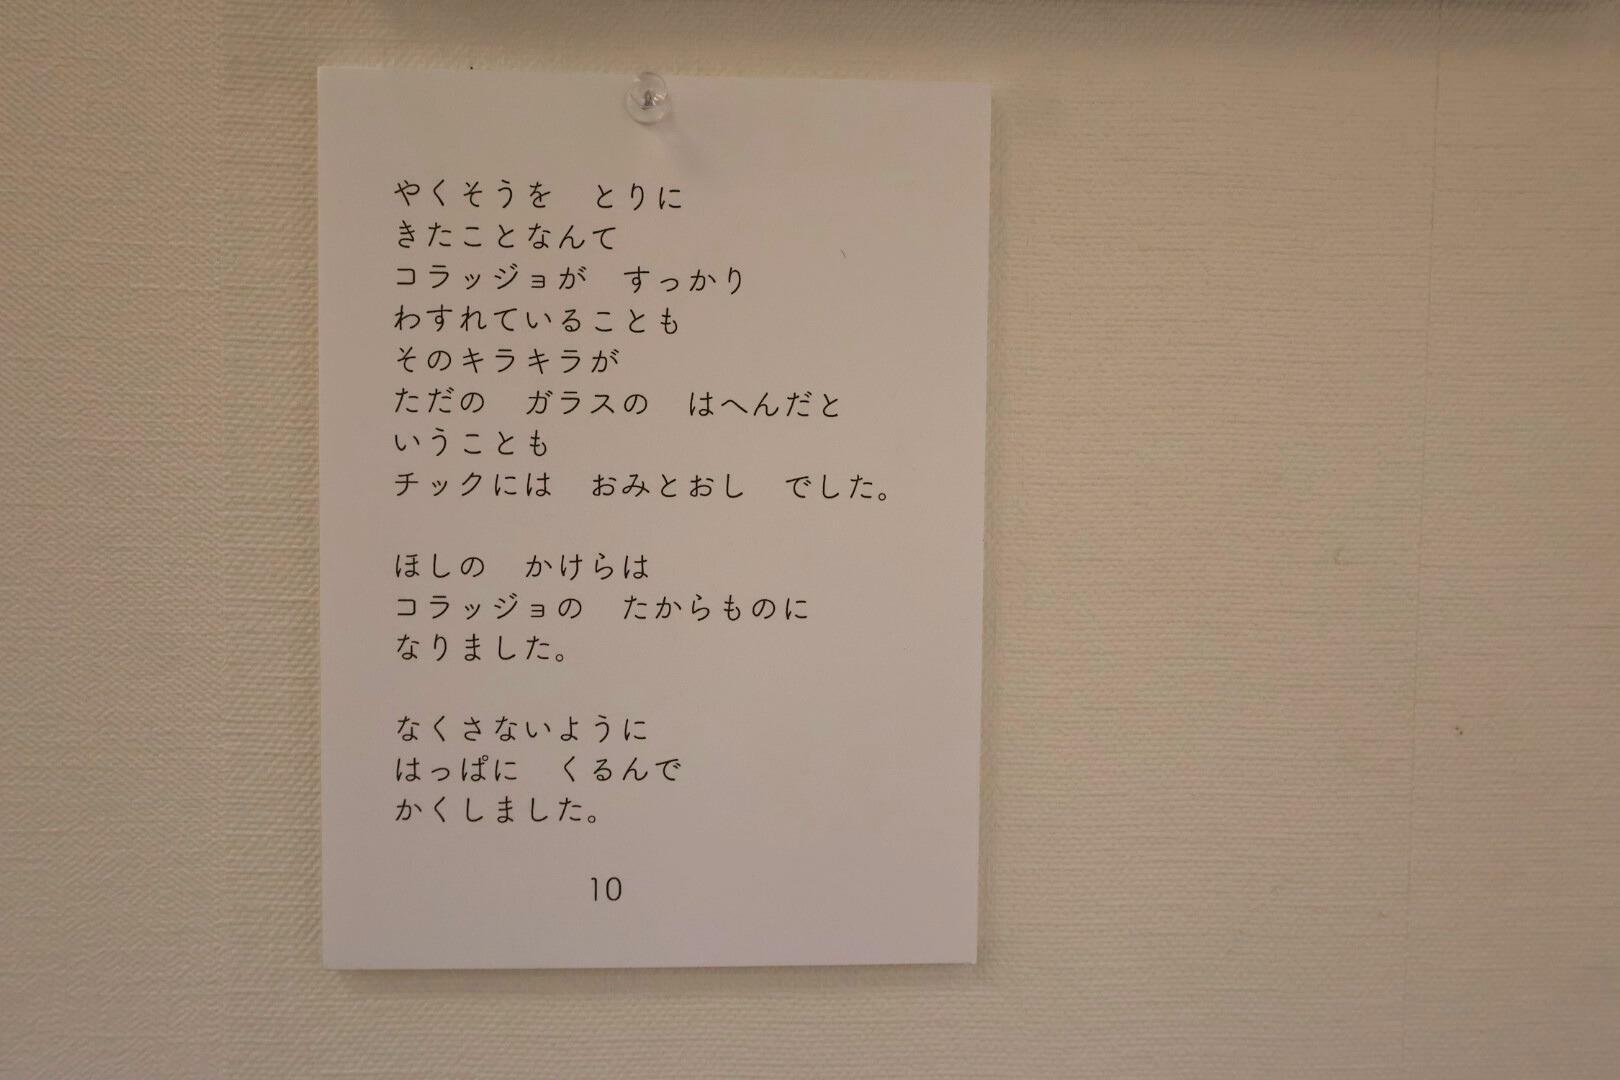 やくそうを　とりに
きたことなんて
コラッジョが　すっかり
わすれていることも
そのキラキラが
ただの　ガラスの　はへんだと
いうことも
チックには　おみとおし　でした。
ほしの　かけらは
コラッジョの　たからものに
なりました。
なくさないように
はっぱに　くるんで
かくしました。
10